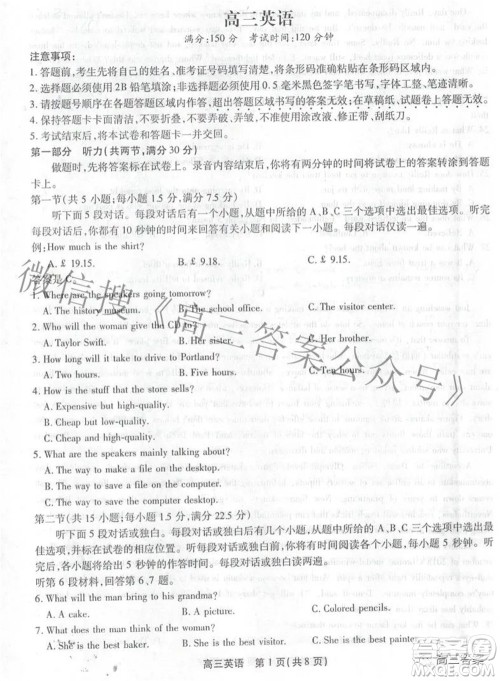 高三英语
满分:150分 考试时间:120分钟
注意事项:
1. 答题前,考生先将自己的姓名、准考证号码填写清楚,将条形码准确粘贴在条形码区域内。
2. 选择题必须使用2B铅笔填涂;非选择题必须使用0.5毫米黑色签字笔书写,字体工整、笔迹清晰。
3. 请按照题号顺序在各题目的答题区域内作答,超出答题区域书写的答案无效;在草稿纸、试题卷上答题无效。
4. 保持答题卡卡面清洁,不要折叠,不要弄破、弄皱,不准使用涂改液、修正带、刮纸刀。
5. 考试结束后,将本试卷和答题卡一并交回。
第一部分 听力(共两节,满分30分)
做题时,先将答案标在试卷上。录音内容结束后,你将有两分钟的时间将试卷上的答案转涂到答题
卡上。
第一节(共5小题;每小题1.5分,满分7.5分)
听下面5段对话。每段对话后有一个小题,从题中所给的A、B、C三个选项中选出最佳选项。听完
每段对话后,你都有10秒钟的时间来回答有关小题和阅读下一小题。每段对话仅读一遍。
例:How much is the shirt?
A. £ 19.15. B. £ 9.18. C. £ 9.15.
答案是C。
1. Where are the speakers going tomorrow?
A. The history museum. B. The science museum. C. The hospital.
2. Who will the woman give the CD to?
A. Taylor Swift. B. Her sister. C. Her brother.
3. How long will it take to drive to Portland?
A. Two hours. B. Five hours. C. Ten hours.
4. How is the stuff that the store sells?
A. Expensive but high-quality.
B. Cheap and low-quality.
C. Cheap but high-quality.
5. What are the speakers mainly talking about?
A. The way to make a file on the desktop.
B. The way to save a file on the desktop.
C. The way to save the computer desktop.
第二节(共15小题;每小题1.5分,满分22.5分)
听下面5段对话或独白。每段对话或独白后有几个小题,从题中所给的A、B、C三个选项中选出
最佳选项,并标在试卷的相应位置。听每段对话或独白前,你将有时间阅读各个小题,每小题5秒钟;
听完后,各小题将给出5秒钟的作答时间。每段对话或独白读两遍。
听第6段材料,回答第6、7题。
6. What will the man bring to his grandma?
A. A cake. B. A picture. C. Some flowers.
7. What does the woman say about the man's grandma?
A. She is the best baker. B. She is the best painter. C. She is the best
高三英语 第1页(共8页)
高三答案
微信搜《高三答案公众号》